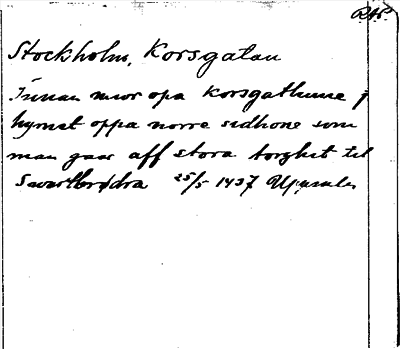 R.A.P.
Stockholm, Korsgatan
Innan mwr opa Korsgathune j
hyrnet oppa norre sidhone som
man gaar aff stora torghit til
Swartbrødra 25/5 1437